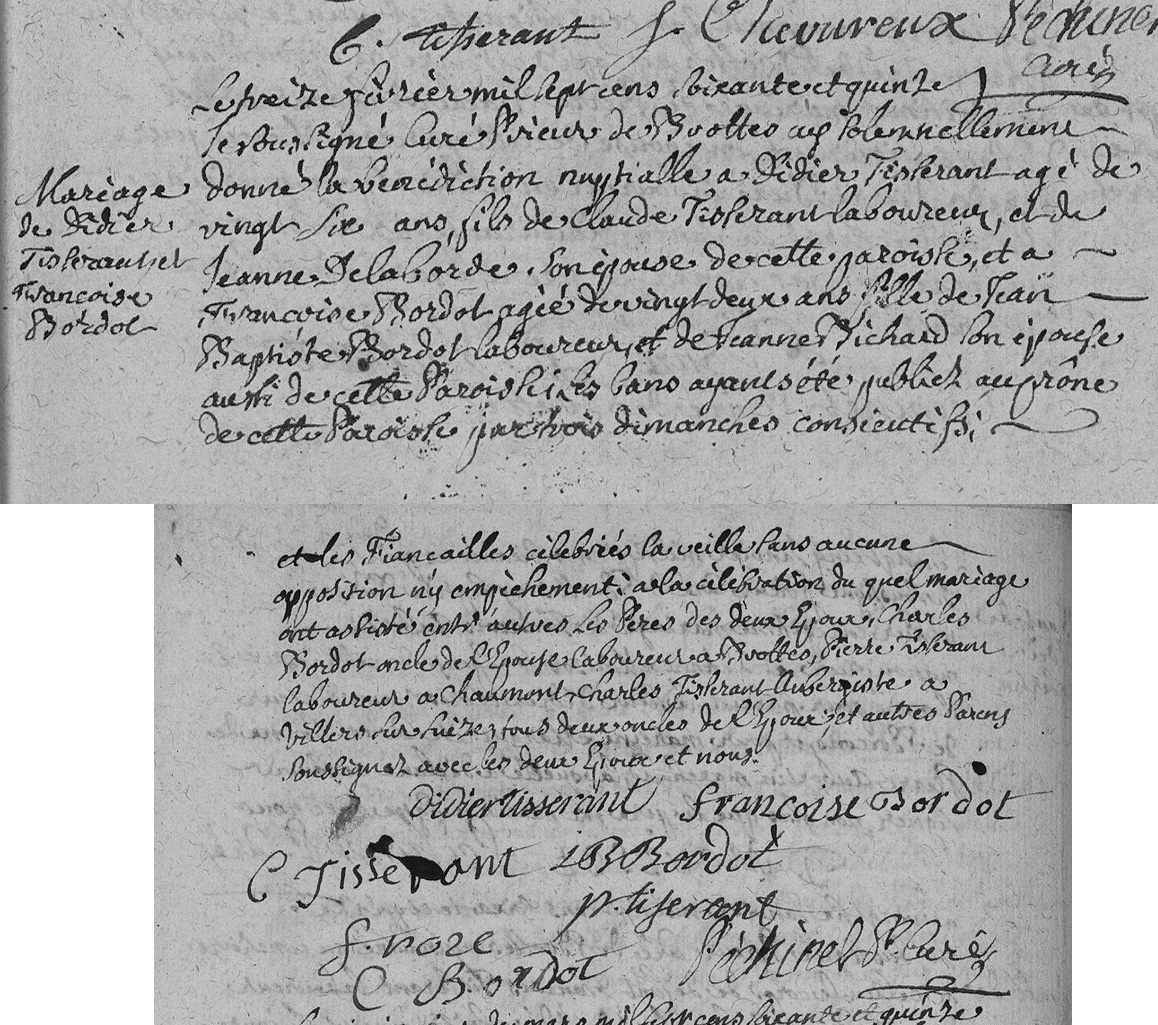 C. tisserant f. Chevureux Péchinet
Curé
Le treize fevrier mil sept cens soixante et quinze
Je soussigné Curé Prieur de Brottes ay solemnellement
donné la bénédiction nuptialle a Didier Tisserant agé de
vingt six ans, fils de Claude Tisserant laboureur, et de
Jeanne Delaborde son épouse de cette paroisse, et a
Francoise Bordot agée de vingt deux ans fille de Jean
Baptiste Bordot laboureur, et de Jeanne Richard son épouse
aussi de cette Paroisse; Les bans ayants été publiez au prône
de cette Paroisse par trois dimanches consecutifs;
Mariage
de Didier
Tisserant et
Francoise
Bordot
et les Fiancailles célébrées la veille sans aucune
opposition n'y empèchement; a la célébration du quel mariage
ont assisté entr'autres Les Peres des deux Epoux, Charles
Bordot oncle de l'Epouse laboureur a Brottes, Pierre Tisserant
laboureur a Chaumont, Charles Tisserant Aubergiste a
Villers sur suize, tous deux oncles de l'Epoux, et autres Parens
soussignez avec les deux Epoux et nous.
Didier tisserant francoise Bordot
C Tisserant JB Bordot
p. tiserant
f. noze
C Bordot Péchinet Pr. Curé
de mars mil sept cens soixante et quinze